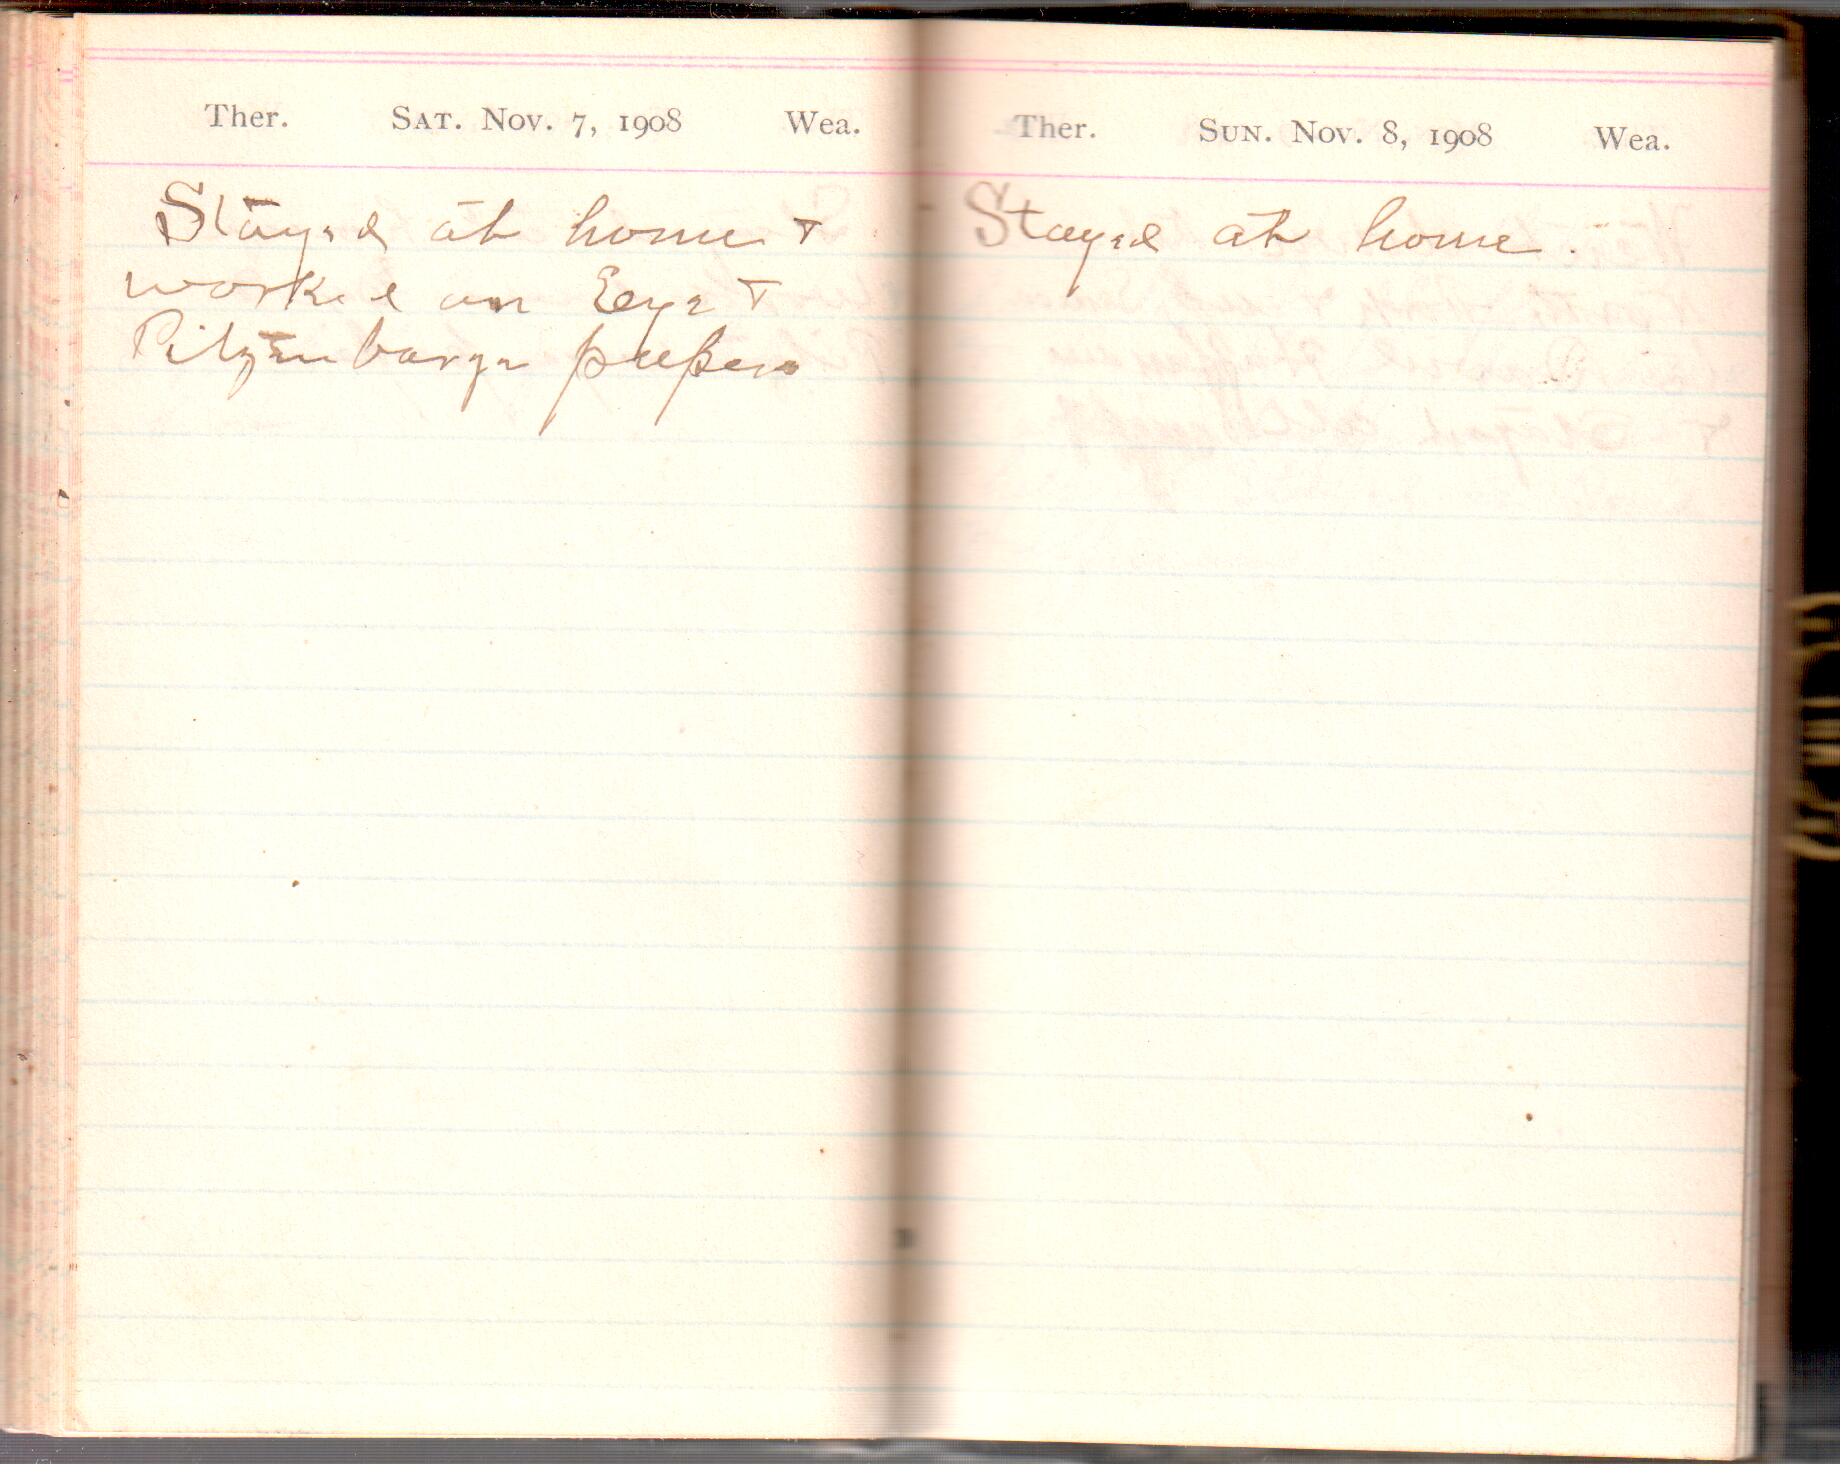 Ther. Sat. Nov. 7, 1908 Wea.
Stayed at home &
worked on Eye &
papers
Ther. Sun. Nov. 8, 1908 Wea.
Stayed at home.